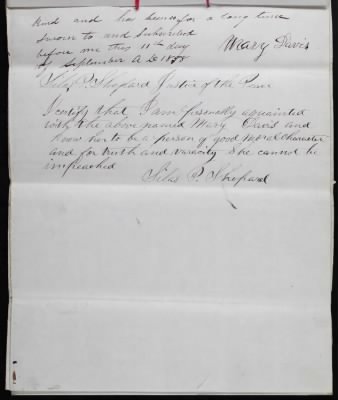 kind and has been for a long time
Sworn to and Subscribed
before me this 11th day Mary Davis
of September A D 1888
Silas P. Shepard Justice of the Peace
I certify that I am personally acquainted
with the above named Mary Davis and
know her to be a person of good moral character
and for truth and varacity she cannot be
impeached
Silas P. Shepard